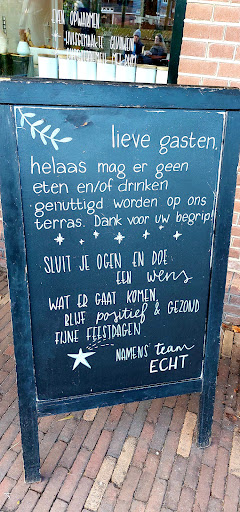 even opwarmen
lieve gasten,
helaas mag er geen
eten en/of drinken
genuttigd worden op ons
terras. Dank voor uw begrip!
SLUIT JE OGEN EN DOE
EEN wens
WAT ER GAAT KOMEN,
BLIJF positief & GEZOND
FIJNE FEESTDAGEN
NAMENS team
ECHT